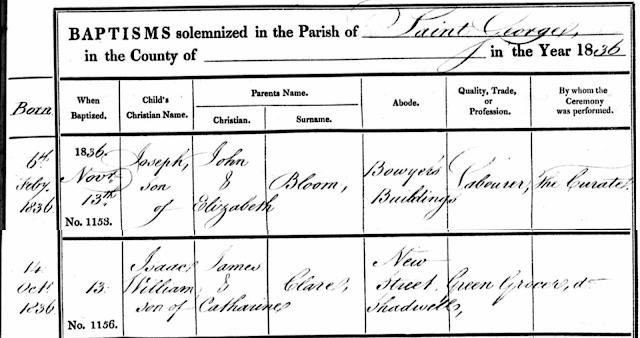 BAPTISMS solemnized in the Parish of Saint George,
in the County of in the Year 1836
Born
When Baptized.
Child's Christian Name.
Parents Name.
Christian.
Surname.
Abode.
Quality, Trade, or Profession.
By whom the Ceremony was performed.
6th Feby. 1836
1836. Novr. 13th
No. 1153.
Joseph, son of
John & Elizabeth
Bloom,
Bowyer's Buildings
Labourer,
The Curate.
14 Octr 1836
13.
No. 1156.
Isaac William son of
James & Catharine
Clare,
New Street Shadwell,
Green Grocer,
do